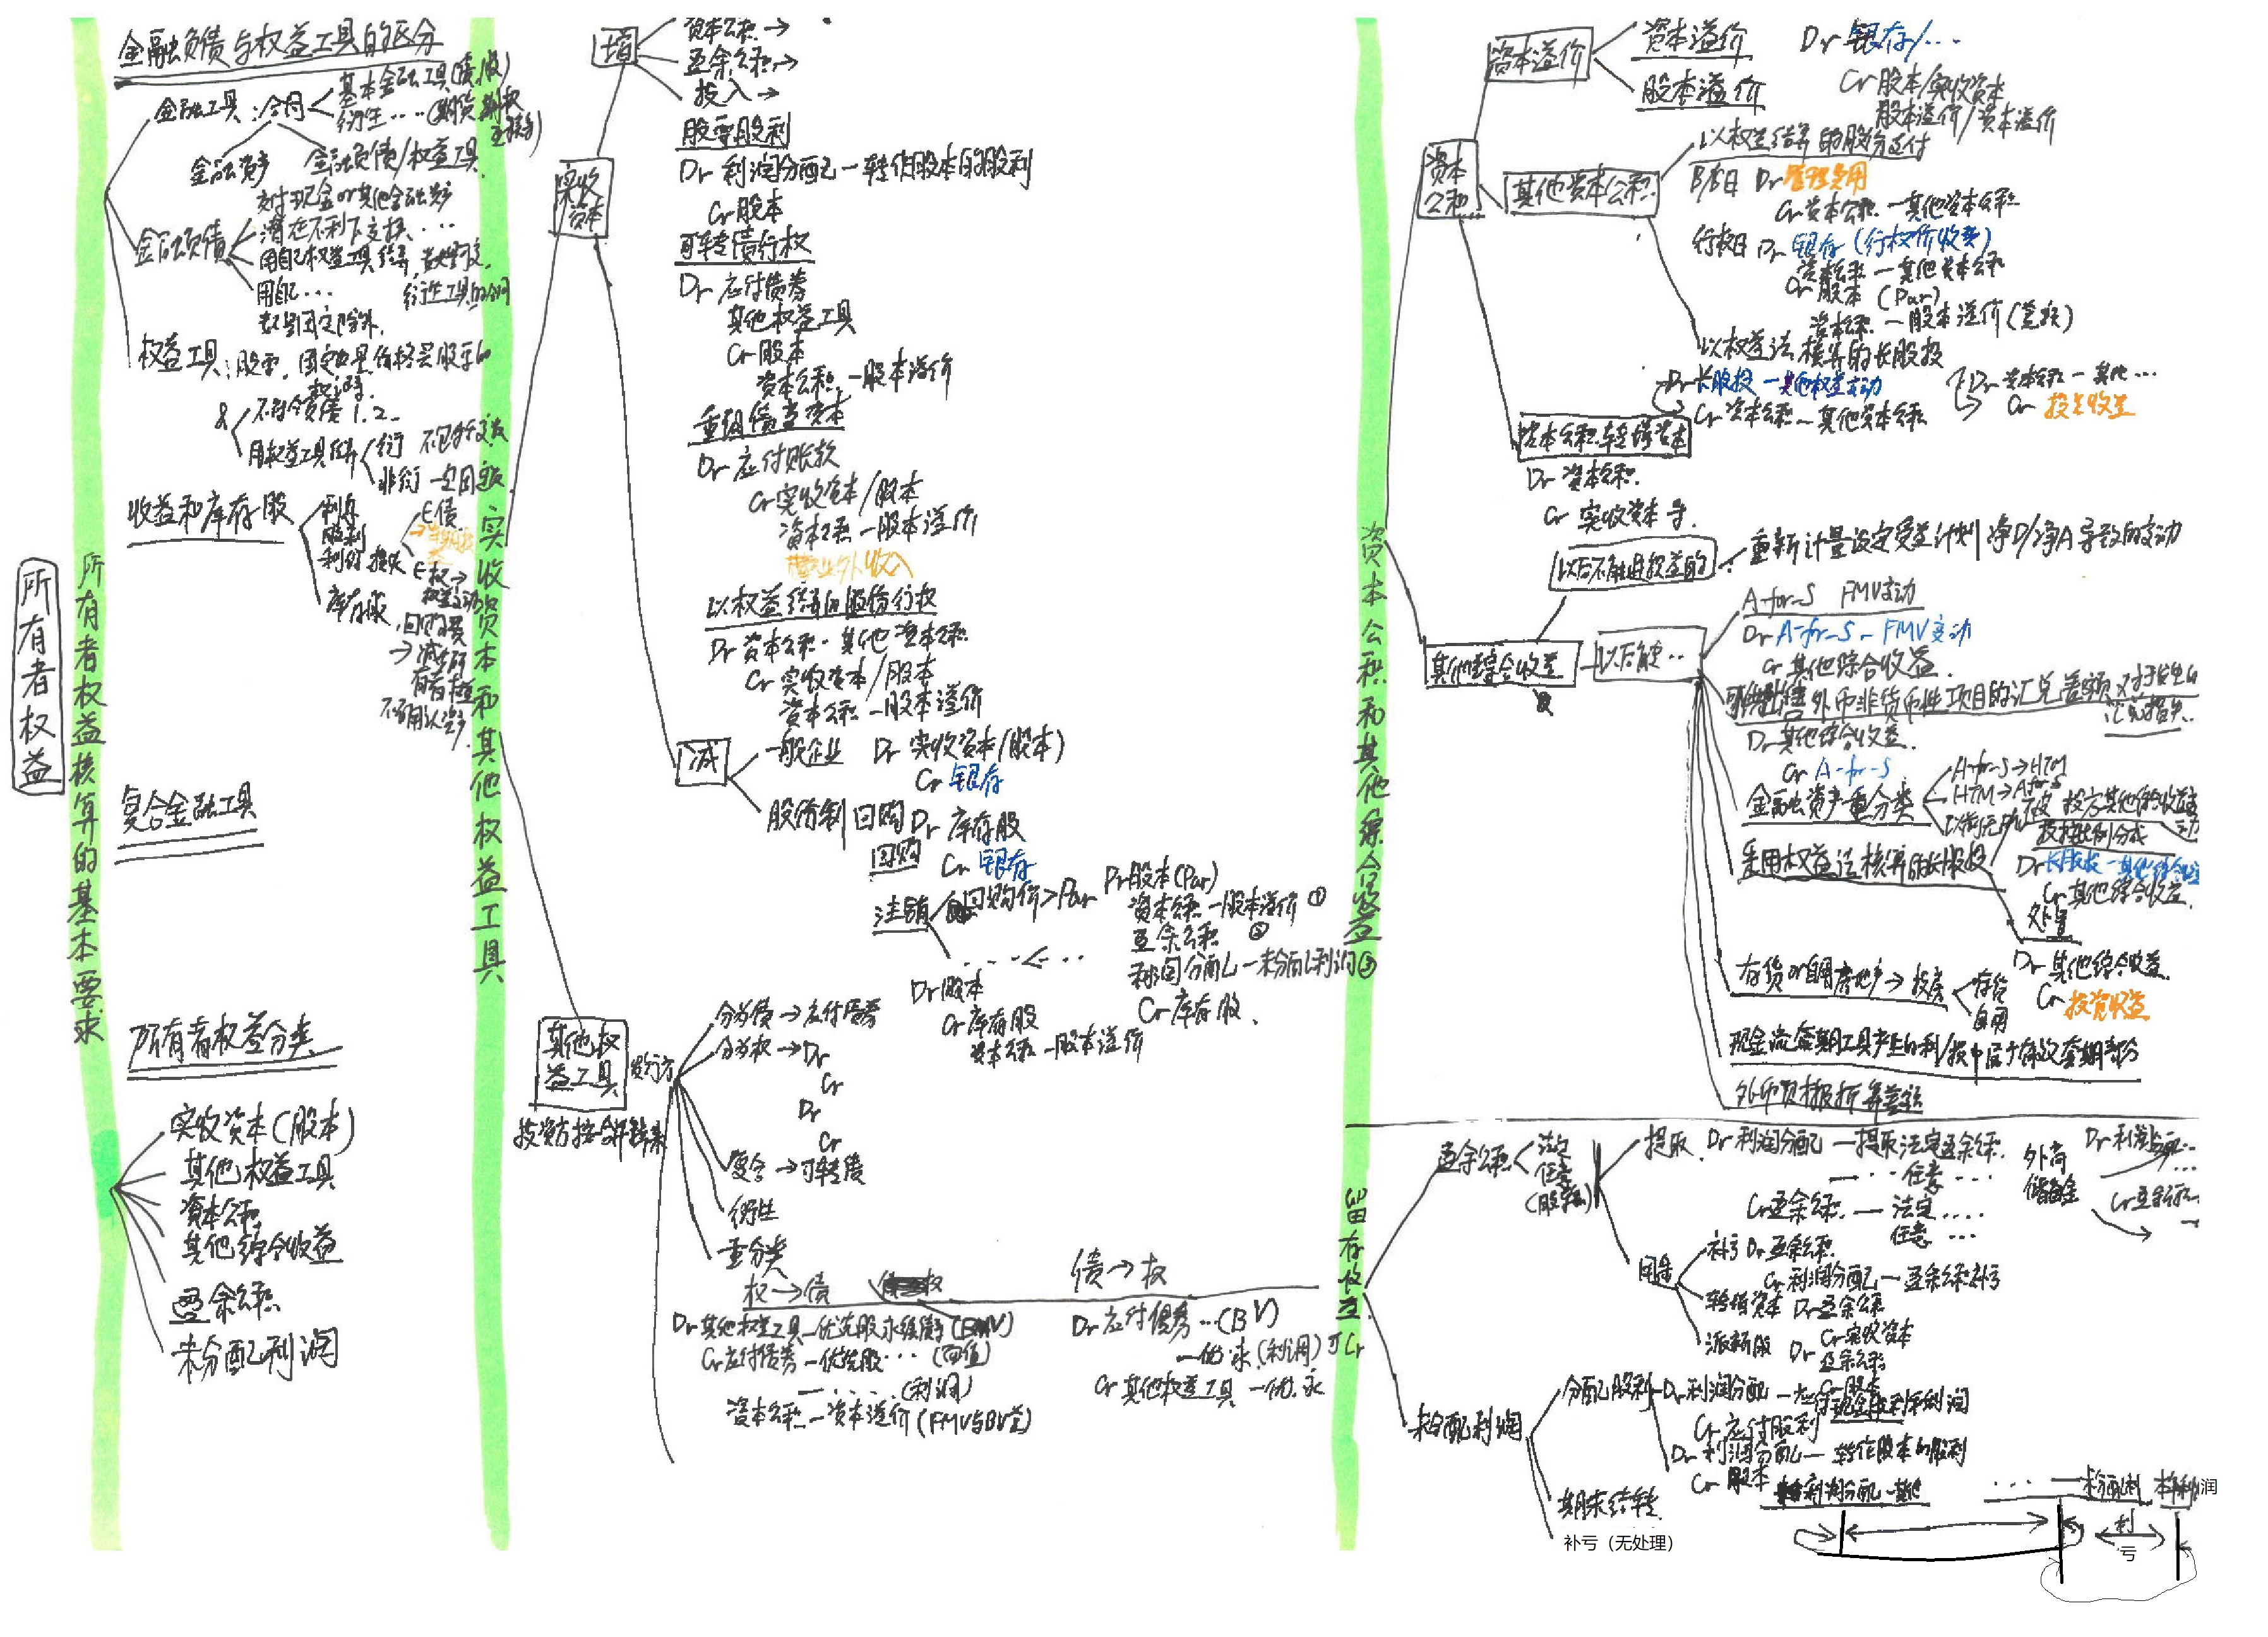 所有者权益
所有者权益核算的基本要求
金融负债与权益工具的区分
金融工具：合同
基本金融工具(债,股)
衍生……(期货 期权
互换等)
金融资产
金融负债/权益工具
金融负债
交付现金or其他金融资产
潜在不利下交换…
用自己权益工具结算
用自己…
衍生工具的合同
数量固定除外.
权益工具：股票.
& 不符合负债1.2.
用权益工具结算
衍
非衍
收益和库存股
利息
股利
利得 损失
∈债
∈权→
库存股
回购
→减少所
有者权益
不确认
复合金融工具
所有者权益分类
实收资本(股本)
其他权益工具
资本公积
其他综合收益
盈余公积
未分配利润
实收资本和其他权益工具
实收资本
增
资本公积→
盈余公积→
投入→
股票股利
Dr 利润分配—转作股本的股利
Cr 股本
可转债行权
Dr 应付债券
其他权益工具
Cr 股本
资本公积—股本溢价
重组债当资本
Dr 应付账款
Cr 实收资本/股本
资本公积—股本溢价
营业外收入
以权益结算的股份行权
Dr 资本公积·其他资本公积
Cr 实收资本/股本
资本公积—股本溢价
减
一般企业 Dr 实收资本(股本)
Cr 银存
股份制 回购 Dr 库存股
回购 Cr 银存
注销 回购价>Par
Dr 股本(Par)
资本公积—股本溢价 ①
盈余公积 ②
利润分配—未分配利润 ③
Cr 库存股.
...<...
Dr 股本
Cr 库存股
资本公积—股本溢价
其他权益工具
发行方
分为债→应付债券
分为权→Dr
Cr
Dr
Cr
复合→可转债
衍生
重分类
权→债
债→权
Dr 其他权益工具—优先股 永续债等(BV)
Cr 应付债券—优先股…(面值)
—……(利调)
资本公积—资本溢价(FMV与BV差)
Dr 应付债券…(BV)
—优 永(利调)可Cr
Cr 其他权益工具—优.永
资本公积和其他综合收益
资本公积
资本溢价
资本溢价
股本溢价
Dr 银存/…
Cr 股本/实收资本
股本溢价/资本溢价
其他资本公积
以权益结算的股份支付
B/S日 Dr 管理费用
Cr 资本公积—其他资本公积
行权日 Dr 银存(行权价收款)
资本公积—其他资本公积
Cr 股本(Par)
资本公积—股本溢价(差额)
以权益法核算的长股投
Dr 长股投—其他权益变动
Cr 资本公积—其他资本公积
Dr 资本公积—其他…
Cr 投资收益
资本公积转增资本
Dr 资本公积
Cr 实收资本等.
其他综合收益
以后不能进损益的
重新计量设定受益计划净D/净A导致的变动
以后能…
A-for-S FMV变动
Dr A-for-S - FMV变动
Cr 其他综合收益.
可供出售外币非货币性项目的汇兑差额
Dr 其他综合收益.
Cr A-for-S
金融资产重分类
A-for-S→HTM
HTM→A-for-S
采用权益法核算的长股投
投方其他综合收益
变动
按持股比例分成
Dr 长股投—其他综合收益
Cr 其他综合收益.
处置
Dr 其他综合收益.
Cr 投资收益
存货or自用房地产→投房
存货
自用
现金流套期工具产生的利/损中属于有效套期部分
外币财报折算差额
留存收益
盈余公积
法定
任意
(股东大会)
提取 Dr 利润分配—提取法定盈余公积.
—…任意…
Cr 盈余公积—法定….
任意…
外商
储备金
Dr 利润分配…
Cr 盈余公积…
用途
补亏 Dr 盈余公积.
Cr 利润分配—盈余公积补亏
转增资本 Dr 盈余公积
Cr 实收资本
派新股 Dr 盈余公积
Cr 股本
未分配利润
分配股利 Dr 利润分配—应付现金股利或利润
Cr 应付股利
Dr 利润分配—转作股本的股利
Cr 股本
期末结转
利润分配—其他
……—未分配利
本年利润
利
亏
补亏（无处理）